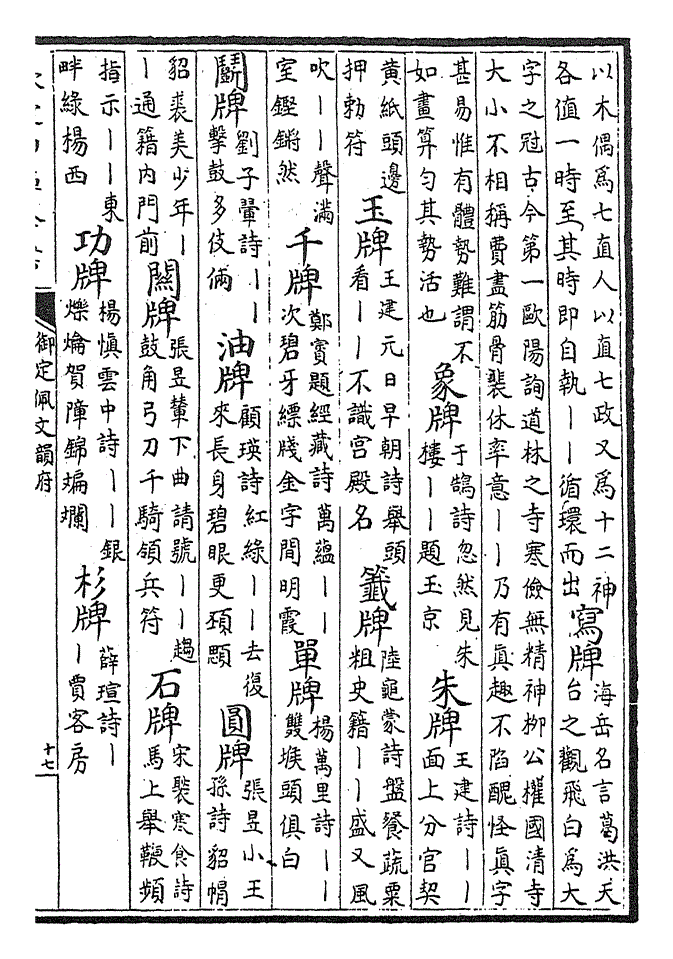 以木偶爲七直人以直七政又爲十二神
各值一時至其時即自執丨丨循環而出
寫牌
海岳名言葛洪天
台之觀飛白爲大
字之冠古今第一歐陽詢道林之寺寒儉無精神柳公權國清寺
大小不相稱費盡筋骨裴休率意丨丨乃有眞趣不陷醜怪眞字
甚易惟有體勢難謂不
如畫算勻其勢活也
象牌
于鵠詩忽然見朱
樓丨丨題玉京
朱牌
王建詩丨丨
面上分官契
黃紙頭邊
押勅符
玉牌
王建元日早朝詩舉頭
看丨丨不識宮殿名
籤牌
陸龜蒙詩盤餐蔬粟
粗史籍丨丨盛又風
吹丨丨聲滿
室鏗鏘然
千牌
鄭賨題經藏詩萬蘊丨丨
次碧牙縹牋金字間明霞
單牌
楊萬里詩丨丨
雙堠頭俱白
鬭牌
劉子翬詩丨丨
擊鼓多伎倆
油牌
顧瑛詩紅綠丨丨去復
來長身碧眼更
圓牌
張昱小王
孫詩貂帽
貂裘美少年丨
丨通籍內門前
關牌
張昱輦下曲請號丨丨趨
鼓角弓刀千騎領兵符
石牌
宋褧寒食詩
馬上舉鞭頻
指示丨丨東
畔綠楊西
功牌
楊慎雲中詩丨丨銀
爍爚賀障錦斒斕
杉牌
薛瑄詩丨
丨賈客房
御定佩文韻府
十七